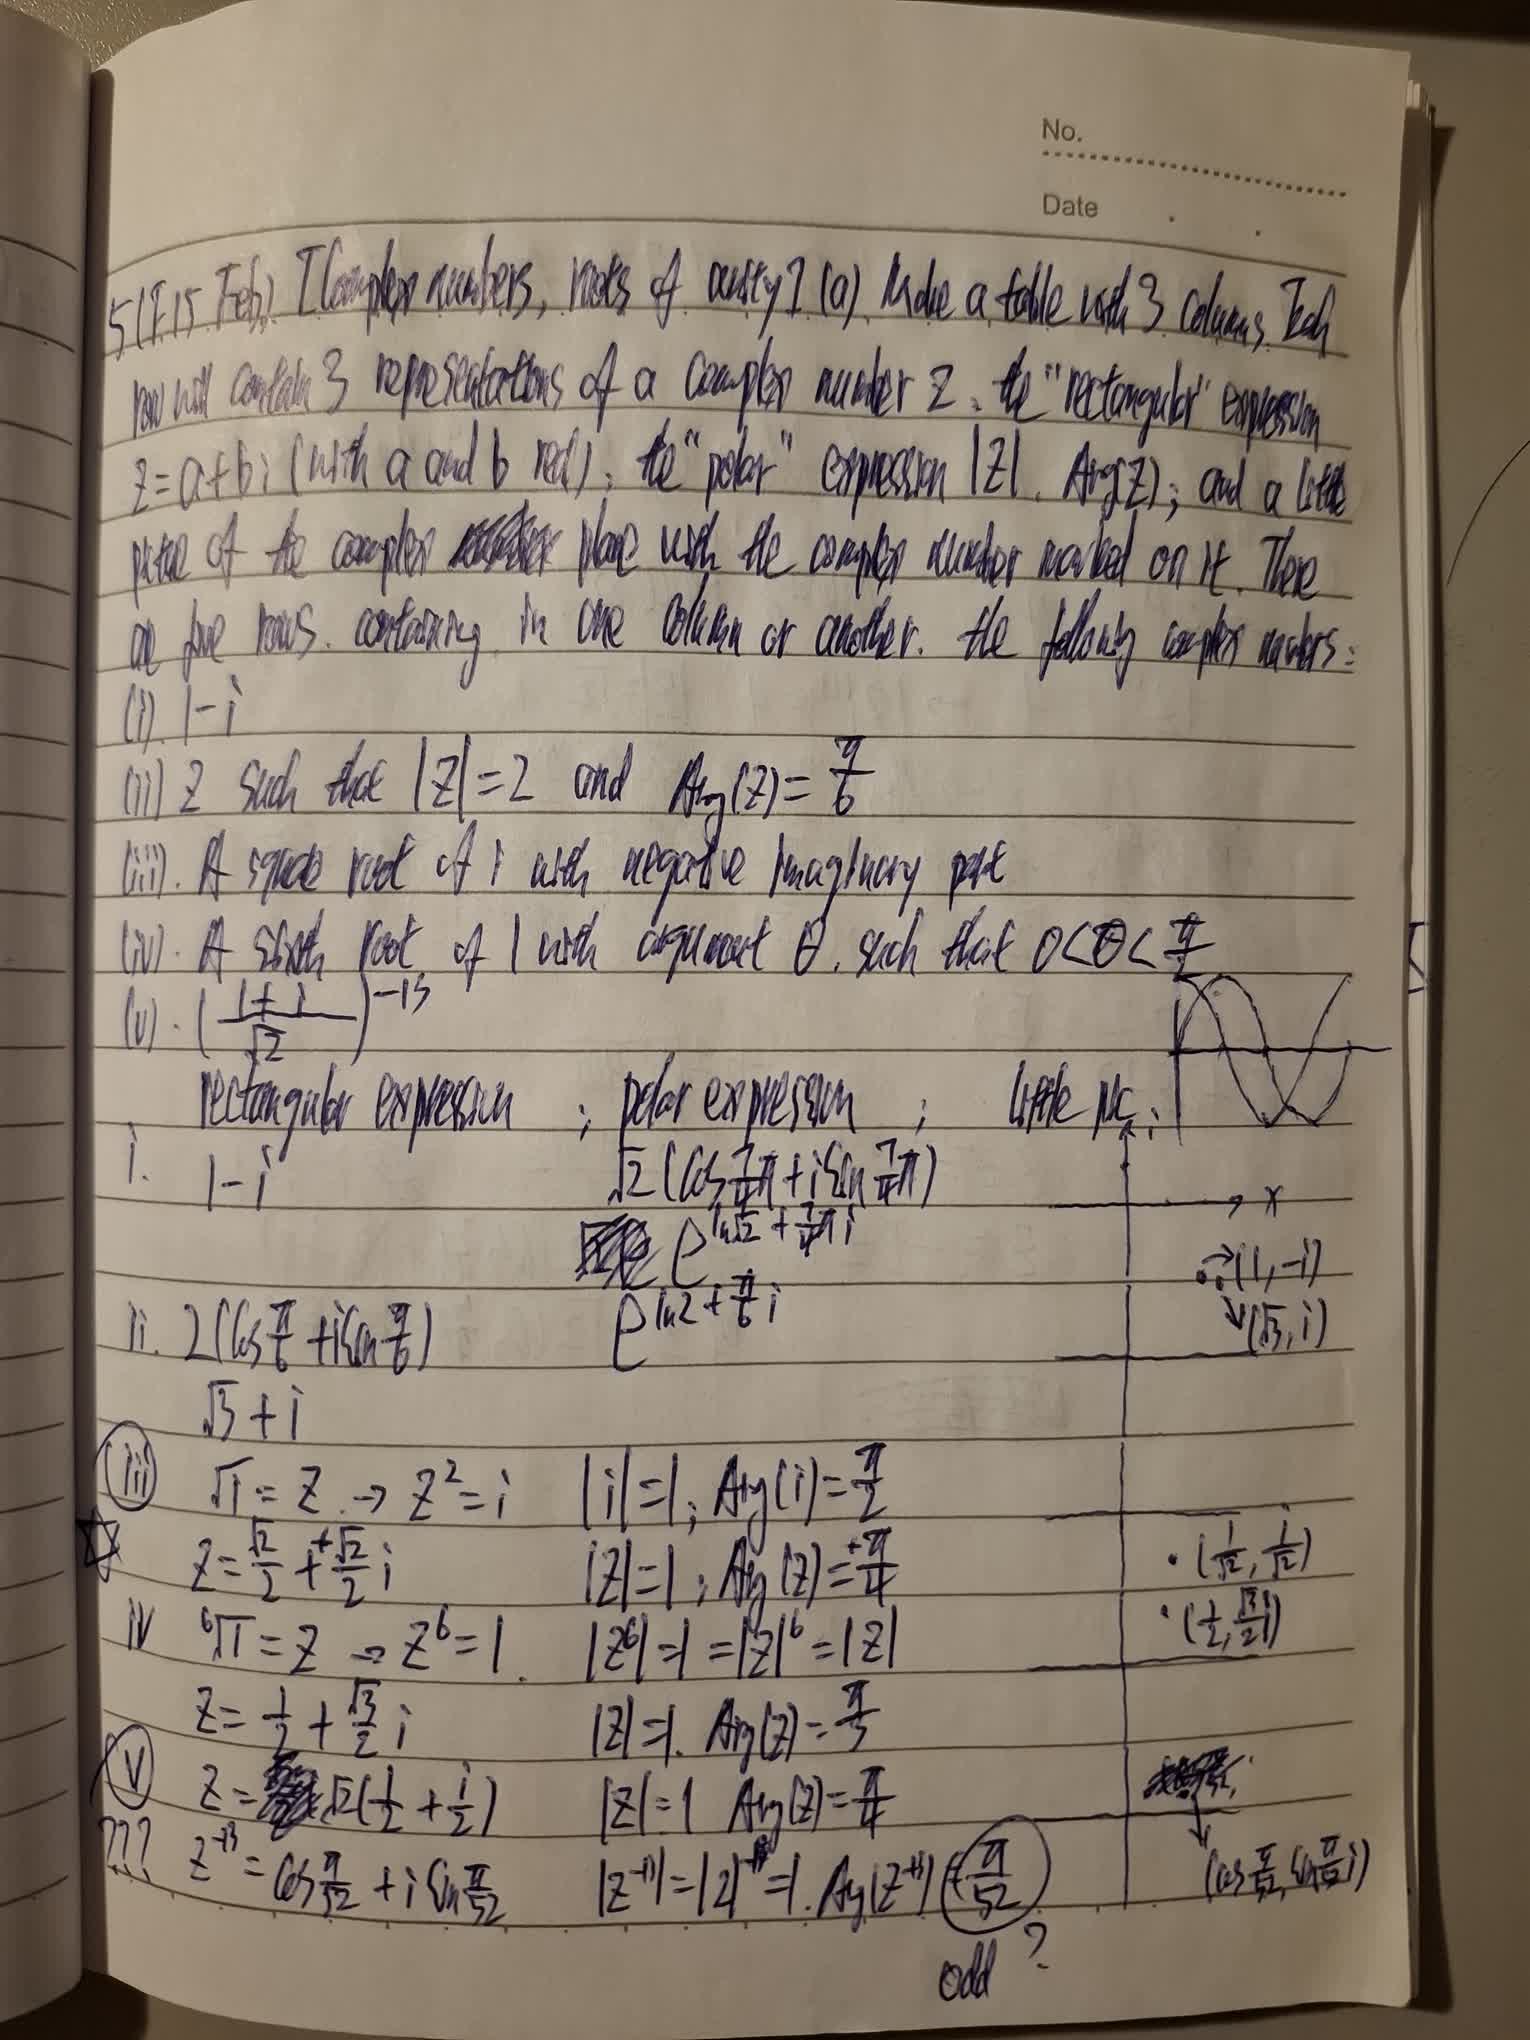 No.
Date
5(F 15 Feb) [Complex numbers, roots of unity] (a) Make a table with 3 columns. Each
row will contain 3 representations of a complex number z: the "rectangular" expression
z=a+bi (with a and b real); the "polar" expression |z|, Arg(z); and a little
picture of the complex plane with the complex number marked on it. There
are five rows, containing, in one column or another, the following complex numbers:
(i) 1-i
(ii) z such that |z|=2 and Arg(z)=π/6
(iii). A square root of i with negative imaginary part
(iv). A sixth root of 1 with argument θ, such that 0<θ<π/2
(v). ((1+i)/√2)^-13
rectangular expression ; polar expression ; little pic.
i. 1-i √2(cos 7/4π + i sin 7/4π) x
e^(ln√2 + 7/4πi) (1,-i)
ii. 2(cos π/6 + i sin π/6) e^(ln2 + π/6 i) (√3, i)
√3+i
(iii) √i = z → z²=i |i|=1; Arg(i)=π/2
z= √2/2 + +√2/2 i |z|=1; Arg(z)=+π/4 (1/√2, i/√2)
iv ⁶√1 = z → z⁶=1. |z⁶|=1=|z|⁶=|z| (1/2, √3/2 i)
z= 1/2 + √3/2 i |z|=1. Arg(z)=π/3
(v) z= √2(1/2 + i/2) |z|=1 Arg(z)=π/4
??? z^-13 = cos π/52 + i sin π/52 |z^-13|=|z|^-13=1. Arg(z^-13) = π/52 (cos π/52, sin π/52 i)
odd ?